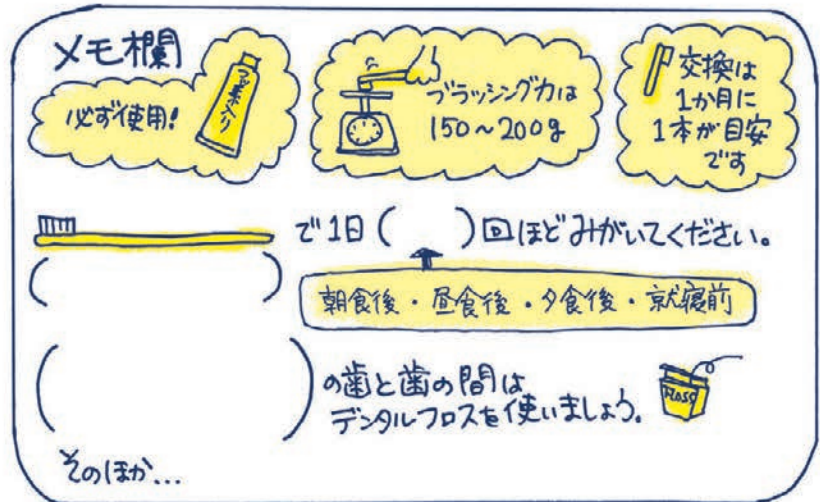 メモ欄
必ず使用!
フッ素入り
ブラッシング力は
150～200g
交換は
1か月に
1本が目安
です
で1日(　　)回ほどみがいてください。
(　　　　　　)
朝食後・昼食後・夕食後・就寝前
(　　　　　　)の歯と歯の間は
デンタルフロスを使いましょう。
FLOSS
そのほか...